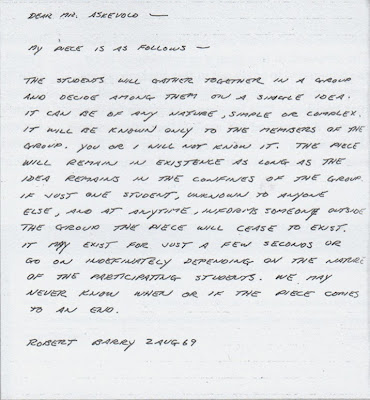 DEAR MR. ASKEVOLD —
MY PIECE IS AS FOLLOWS —
THE STUDENTS WILL GATHER TOGETHER IN A GROUP
AND DECIDE AMONG THEM ON A SINGLE IDEA.
IT CAN BE OF ANY NATURE, SIMPLE OR COMPLEX.
IT WILL BE KNOWN ONLY TO THE MEMBERS OF THE
GROUP. YOU OR I WILL NOT KNOW IT. THE PIECE
WILL REMAIN IN EXISTENCE AS LONG AS THE
IDEA REMAINS IN THE CONFINES OF THE GROUP.
IF JUST ONE STUDENT, UNKNOWN TO ANYONE
ELSE, AND AT ANYTIME, INFORMS SOMEONE OUTSIDE
THE GROUP THE PIECE WILL CEASE TO EXIST.
IT MAY EXIST FOR JUST A FEW SECONDS OR
GO ON INDEFINATELY DEPENDING ON THE NATURE
OF THE PARTICIPATING STUDENTS. WE MAY
NEVER KNOW WHEN OR IF THE PIECE COMES
TO AN END.
ROBERT BARRY 2 AUG 69